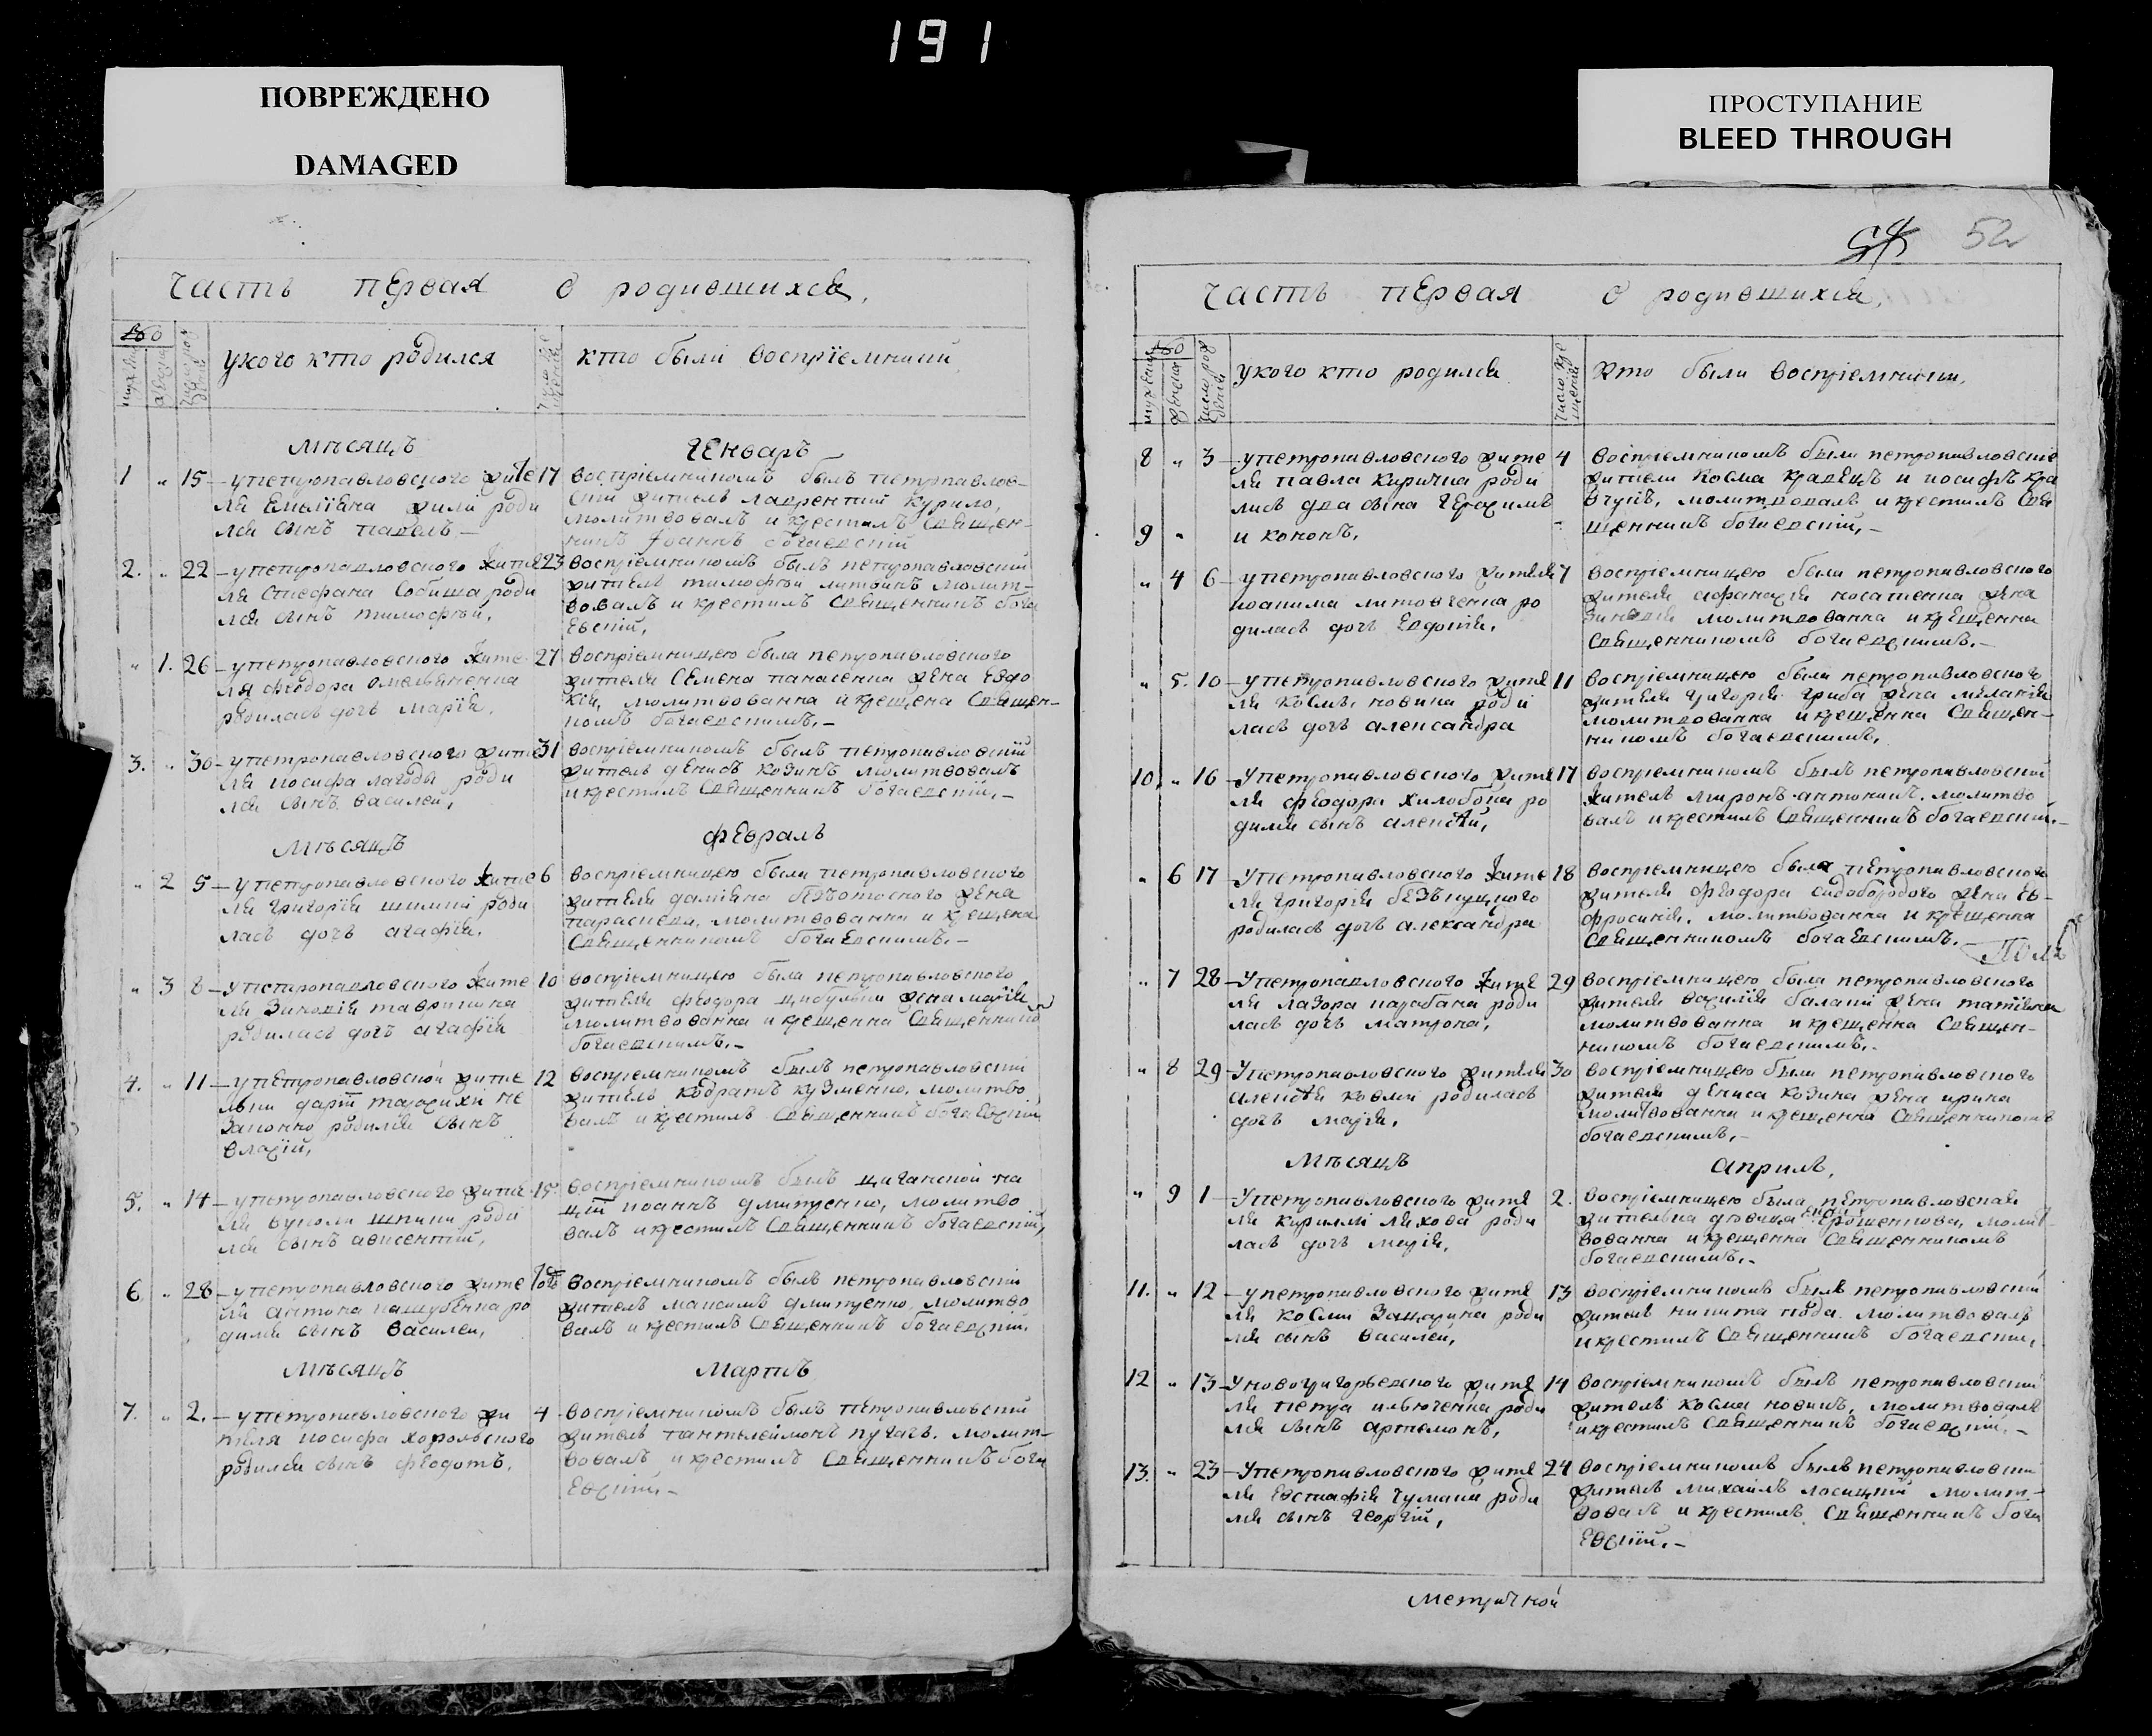 191
ПОВРЕЖДЕНО
DAMAGED
ПРОСТУПАНИЕ
BLEED THROUGH
Часть первая о родившихся,
укого кто родился
кто были восприемники
Мѣсяцъ Генваръ
1 „ 15 – упетропавловского жите 17
ля Емелїяна роди
лся сынъ павелъ –
воспріемникомъ былъ петропавлов-
скій житель лаврентій курило,
молитвовалъ и крестилъ Священ-
никъ Іоаннъ богаевскій
2. „ 22 – упетропавловского жите 23
ля Стефана роди
лся сынъ тимофей,
воспріемникомъ былъ петропавловскій
житель тимофей литвинъ молит-
вовалъ и крестилъ Священникъ бога
Евскій,
„ 1. 26 – упетропавловского жите 27
ля феодора омельяненка
родиласъ дочъ Марїя,
воспріемницею была петропавловского
жителя Семена панасенка жена Евдо
кія, молитвованна и крещена Священ-
никомъ богаевскимъ. –
3. „ 30 – упетропавловского жите 31
ля иосифа лагоды роди
лся сынъ василей,
воспріемникомъ былъ петропавловскїй
житель денисъ козинъ молитвовалъ
и крестилъ Священникъ богаевскій. –
Мѣсяцъ февралъ
„ 2 5 – упетропавловского жите 6
ля григорїя роди
ласъ дочъ агафїя,
воспріемницею была петропавловского
жителя дамїана жена
параскева, молитвованна и крещена
Священникомъ богаевскимъ. –
„ 3 8 – упетропавловского жите 10
ля Зиновїя
родиласъ дочъ агафїя
воспріемницею была петропавловского
жителя феодора цибулки жена марїя
молитвованна и крещенна Священнико
богаевскимъ. –
4. „ 11 – упетропавловской жите 12
льки дарїи не
законно родился сынъ
власїй,
воспріемникомъ былъ петропавловскій
житель кодратъ кузменко, молитво
валъ и крестилъ Священникъ богаевскій
5. „ 14 – упетропавловского жите 15
ля вуколи шпики роди
лся сынъ авксентїй,
воспріемникомъ былъ циганской на
цїи иоаннъ дмитренко, молитво
валъ и крестилъ Священникъ богаевскій,
6. „ 28 – упетропавловского жите
ля антона роди
лся сынъ Василеи,
воспріемникомъ былъ петропавловскій
житель максимъ дмитренко, молитво
валъ и крестилъ Священникъ богаевскій.
Мѣсяцъ Мартъ
7. „ 2. – упетропавловского жи 4
теля иосифа хорольского
родился сынъ феодотъ,
воспріемникомъ былъ петропавловскій
житель пантелеймонъ пугачъ. молит-
вовалъ и крестилъ Священникъ бога
Евскій. –
52
Часть первая о родившихся,
укого кто родился
Кто были воспріемники,
8 „ 3 – упетропавловского жите 4
ля павла роди
лисъ два сына Герасимъ
9 „ и кононъ,
воспріемникомъ были петропавловскіе
жители Косма кравецъ и иосифъ кра
вчукъ, молитвовалъ и крестилъ Свя
щенникъ богаевскій, –
„ 4 6 – упетропавловского жителя 7
иоакима литовченка ро
диласъ дочъ Евдокія,
воспріемницею была петропавловского
жителя афанасїя носаченка жена
Зиновїя молитвованна и крещенна
Священникомъ богаевскимъ. –
„ 5. 10 – упетропавловского жите 11
ля Космы новика роди
ласъ дочъ александра
воспріемницею была петропавловского
жителя григорїя гриба жена меланїя
молитвованна и крещенна Священ-
никомъ богаевскимъ,
10 „ 16 – упетропавловского жите 17
ля феодора хилобока ро
дился сынъ алексѣй,
воспріемникомъ былъ петропавловской
житель миронъ антоникъ. молитво
валъ и крестилъ Священникъ богаевскій. –
„ 6 17 – упетропавловского жите 18
ля григорїя
родиласъ дочъ александра
воспріемницею была петропавловского
жителя феодора сидобородого жена ев-
фросинїя, молитвованна и крещенна
Священникомъ богаевскимъ. –
„ 7 28 – упетропавловского жите 29
ля лазора карабана роди
ласъ дочъ матрона,
воспріемницею была петропавловского
жителя василїя балаки жена татїяна
молитвованна и крещенна Священ-
никомъ богаевскимъ. –
„ 8 29 – упетропавловского жителя 30
алексѣя козми родиласъ
дочъ марїя,
воспріемницею была петропавловского
жителя дениса козина жена ирина
молитвованна и крещенна Священникомъ
богаевскимъ, –
Мѣсяцъ априлъ,
„ 9 1 – упетропавловского жите 2.
ля кирилла ляхова роди
ласъ дочъ марїя,
воспріемницею была петропавловская
жителька дѣвица Ерошенкова, молит-
вованна и крещенна Священникомъ
богаевскимъ. –
11. „ 12 – упетропавловского жите 13
ля Космы роди
лся сынъ василей,
воспріемникомъ былъ петропавловскій
житель никита молитвовалъ
и крестилъ Священникъ богаевскій,
12 „ 13 – уновогригорьевского жите 14
ля петра ильюченка роди
лся сынъ артемонъ,
воспріемникомъ былъ петропавловскій
житель Косма новикъ, молитвовалъ
и крестилъ Священникъ богаевскій. –
13. „ 23 – упетропавловского жите 24
ля Евстафїя чумака роди
лся сынъ георгїй,
воспріемникомъ былъ петропавловскій
житель михаилъ лосицкїй молит-
вовалъ и крестилъ Священникъ бога
Евскій. –
метричной